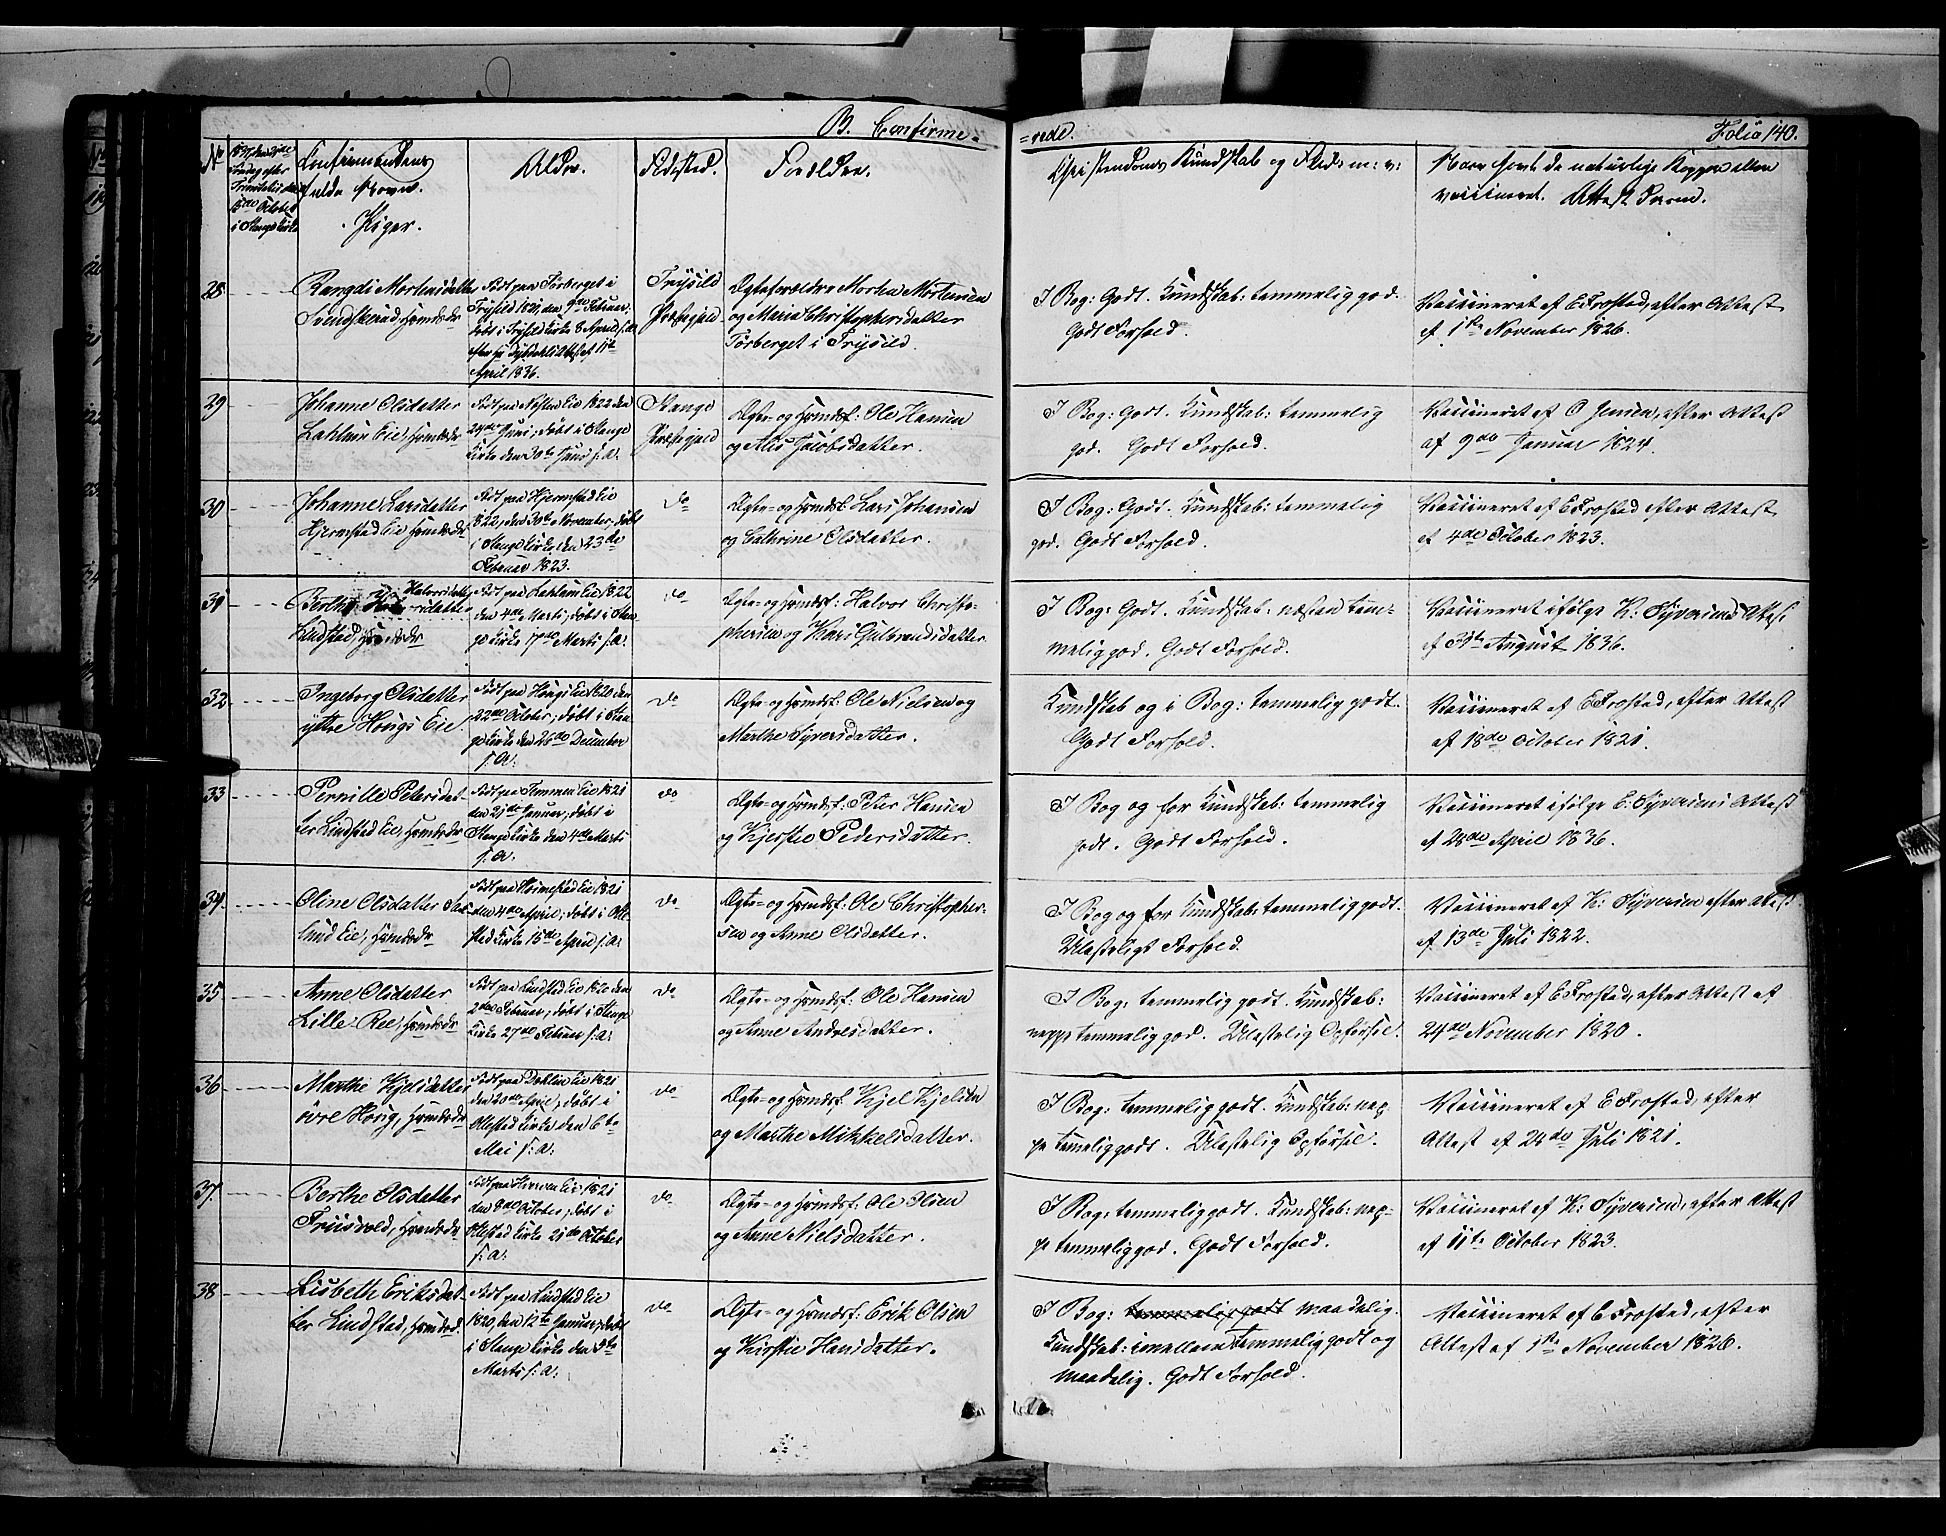 B. Confirme-
=rede.
Folio 140.
No
Confirmandens
fulde Navn.
Piger.
Alder.
Fødested.
Forældre.
Christendoms Kundskab og Flid m: v:
Naar havt de naturlige Kopper eller
vaccineret. Attest derom.
28
Rangdi Mortensdatter
Født paa Førberget i
Trysild 1821, den 9de Februar,
døbt i Trysild Kirke 8 April s. A.
April 1836.
Trysild
Præstegjeld
Ægteforældre Morten Mortensen
og Maria Christophersdatter
Førberget i Trysild.
I Bog: Godt. Kundskab: temmelig god.
Godt Forhold.
Vaccineret af E Frostad, efter Attest
af 1ste November 1826.
29
Johanne Olsdatter
Lahlum Eie, Huusmds dr
Født paa Næsten Eie 1822 den
24de Juni, døbt i Stange
Kirke den 30te Juni s. a.
Stange
Præstegjeld
Ægte- og Huusmdsf: Ole Hansen
og Alis Jacobsdatter.
I Bog: Godt. Kundskab: temmelig
god. Godt Forhold.
Vaccineret af O Jensen, efter Attest
af 9de Januar 1824.
30
Johanne Larsdatter
Hjermstad Eie Huusmds dr
Født paa Hjermstad Eie
1822, den 30te November, døbt
i Stange Kirke, den 23de
Februar 1823.
do
Ægte- og Huusmdsf: Lars Johansen
og Cathrine Olsdatter.
I Bog: Godt. Kundskab: temmelig
god. Godt Forhold.
Vaccineret af E Frostad efter Attest
af 4de October 1823.
31
Berthe Halvorsdatter
Lindstad, Huusmds dr
Født paa Lahlum Eie 1822
den 4de Marts, døbt i Stan-
ge Kirke 17de Marts s. a.
do
Ægte- og Huusmdsf: Halvor Christo-
phersen og Kari Gulbrandsdatter.
I Bog: Godt. Kundskab: næsten tem-
melig god. Godt Forhold.
Vaccineret ifølge K: Syversens Attest
af 31te August 1836.
32
Ingeborg Olsdatter
yttre Hougs Eie.
Født paa Hougs Eie 1820 den
22de October, døbt i Stan
ge Kirke den 26de December
s. A:
do
Ægte- og Huusmdsf: Ole Nielsen og
Marthe Syversdatter.
Kundskab og i Bog: temmelig godt.
Godt Forhold.
Vaccineret af E Frostad, efter Attest
af 18de October 1821.
33
Pernille Petersdat-
ter Lindstad Eie, Huusmds dr
Født paa Temmen Eie 1821
den 21de Januar, døbt i
Stange Kirke den 4de Marts
s. A.
do
Ægte- og Huusmdsf: Peter Hansen
og Kjerstie Pedersdatter.
I Bog og for Kundskab: temmelig
godt. Godt Forhold.
Vaccineret ifølge E: Syversens Attest
af 28de April 1836.
34
Oline Olsdatter
lund Eie, Huusmds dr
Født paa Hørmestad Eie 1821
den 4de April, døbt i Ott-
stad Kirke 15de April s. a:
do
Ægte- og Huusmdsf: Ole Christopher-
sen og Anne Olsdatter.
I Bog og for Kundskab: temmelig godt.
Ulasteligt Forhold.
Vaccineret af K: Syversen efter Attest
af 13de Juli 1822.
35
Anne Olsdatter
Lille Ree, Huusmds dr
Født paa Lindstad Eie 1820 den
2den Februar, døbt i Stange
Kirke 27de Februar s. a:
do
Ægte- og Huusmdsf: Ole Hansen
og Anne Andersdatter.
I Bog: temmelig godt. Kundskab:
neppe temmelig god. Ulastelig Opførsel.
Vaccineret af E Frostad, efter Attest af
24de November 1820.
36
Marthe Kjelsdatter
øvre Houg, Huusmds dr
Født paa Dæhlin Eie 1821
den 20de April, døbt i
Ottestad Kirke den 6te
Mai s. a:
do
Ægte- og Huusmdsf: Kjel Kjelsen
og Marthe Mikkelsdatter.
I Bog: temmelig godt. Kundskab: nep-
pe temelig godt. Ulastelig Opførsel.
Vaccineret af E Frostad, efter
Attest af 24de Juli 1821.
37.
Berthe Olsdatter
Friisvold, Huusmds dr
den 8de October, døbt i
Ottestad Kirke 21de October
s. a:
do
Ægte- og Huusmdsf: Ole Olsen
og Anne Nielsdatter.
I Bog: temmelig godt. Kundskab: nep-
pe temmelig god. Godt Forhold.
Vaccineret af K: Syversen, efter Attest
af 11te October 1823.
38
Lisbeth Eriksdat-
ter Lindstad, Huusmdsd.
Født paa Lindstad Eie
1820 den 12te Januar, døbt
i Stange Kirke den 5te
Marts s: a:
do
Ægte- og Huusmdsf: Erik Olsen
og Kirstie Hansdatter.
I Bog: temmelig godt maadelig.
Kundskab: imellem temmelig godt og
maadelig. Godt Forhold.
Vaccineret af E Frostad, efter
Attest af 1ste November 1826.